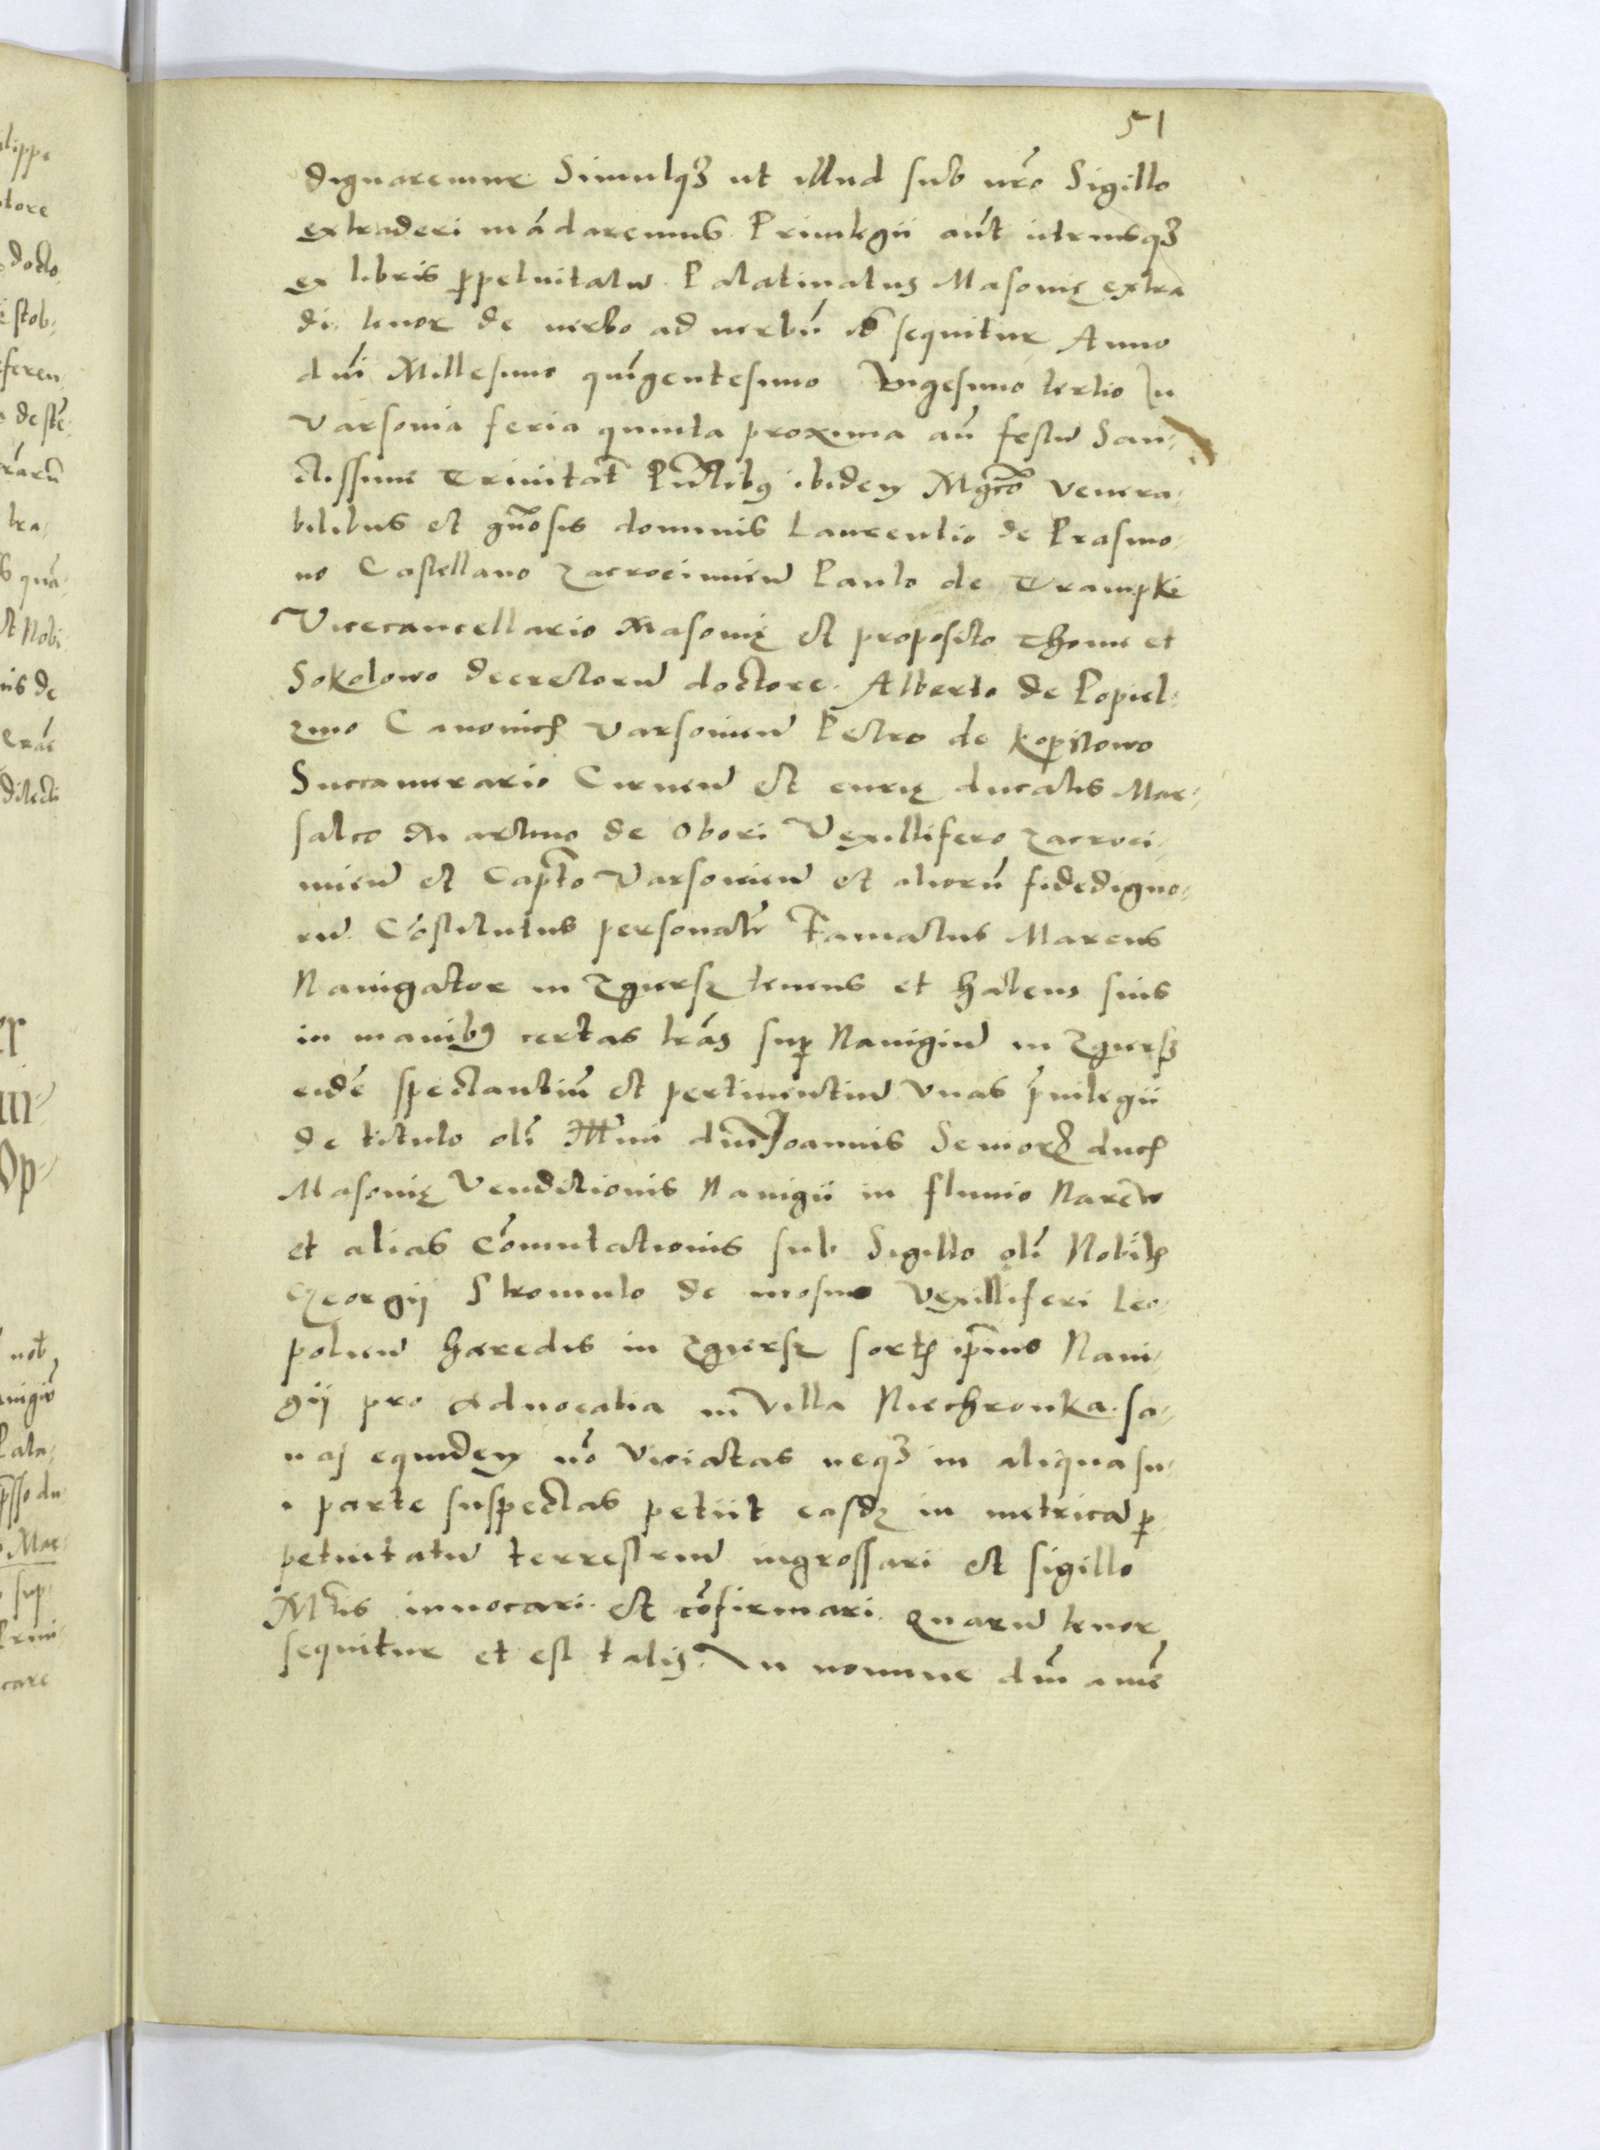 51
dignaremur Simulq3 ut illud sub nro Sigillo
extraderi mādaremus Priuilegii aūt utriusq3
ex libris ꝑpetuitatū Palatinatus Masouię extra
di tenor de verbo ad verbū sequitur Anno
dni Millesimo quīgentesimo Vigesimo tertio In
Varsouia feria quinta proxima an festū San-
ctissime Trinitat Pntibus ibidem Mgco Venera-
bilibus et gnosis dominis Laurentio de Prasmo-
no Castellano Zacrocimien Paulo de Trampki
Vicecancellario Masouię et preposito Thome et
Sokolowo decretorū doctore. Alberto de Popiel-
zino Canonico Varsouien Petro de Kopitowo
Succamerario Cirnen et curię ducalis Mar-
salco Martino de Obori Vexillifero Zacroci-
mien et Capto Varsouien et aliorū fidedigno-
rū Cōstitutus personalr Famatus Marcus
Nauigator in Zgiersz tenens et habens suis
in manibus certas lras sup Nauigiū in Zgiersz
eidē spectantiū et pertinentiū Vnas priuilegii
de titulo oli Illmi dni Joannis Senioris ducis
Masouię Venditionis Nauigii in fluuio Narew
et alias Cōmutationis sub Sigillo oli Nobilis
Georgij Stromulo de mosino Vexilliferi Leo-
polien haeredis in Zgiersz sortis ipsius Naui-
gij pro Aduocatia in Villa Niechronka. sa-
nas equidem nō Viciatas neq3 in aliqua su-
i parte suspectas petiit easdz in metricā ꝑ-
petuitatū terrestriū ingrossari et sigillo
Mtis innocari. et cōfirmari. Quarū tenor
sequitur et est talis. In nomine dni amē